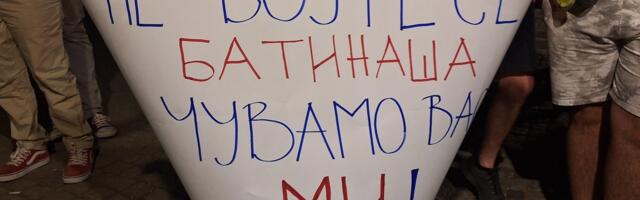 НЕ БОЈТЕ СЕ
БАТИНАША
ЧУВАМО ВАС
МИ!